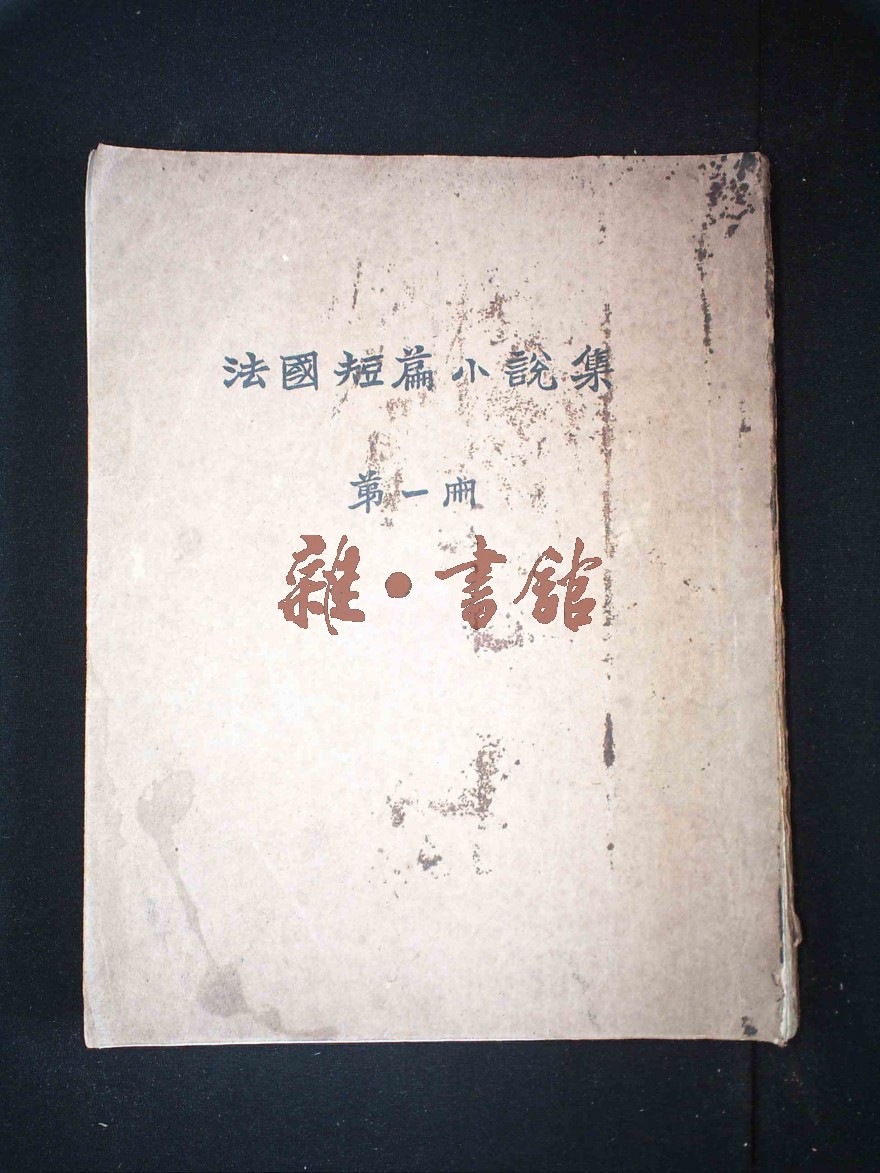 法國短篇小說集
第一冊
雜·書館